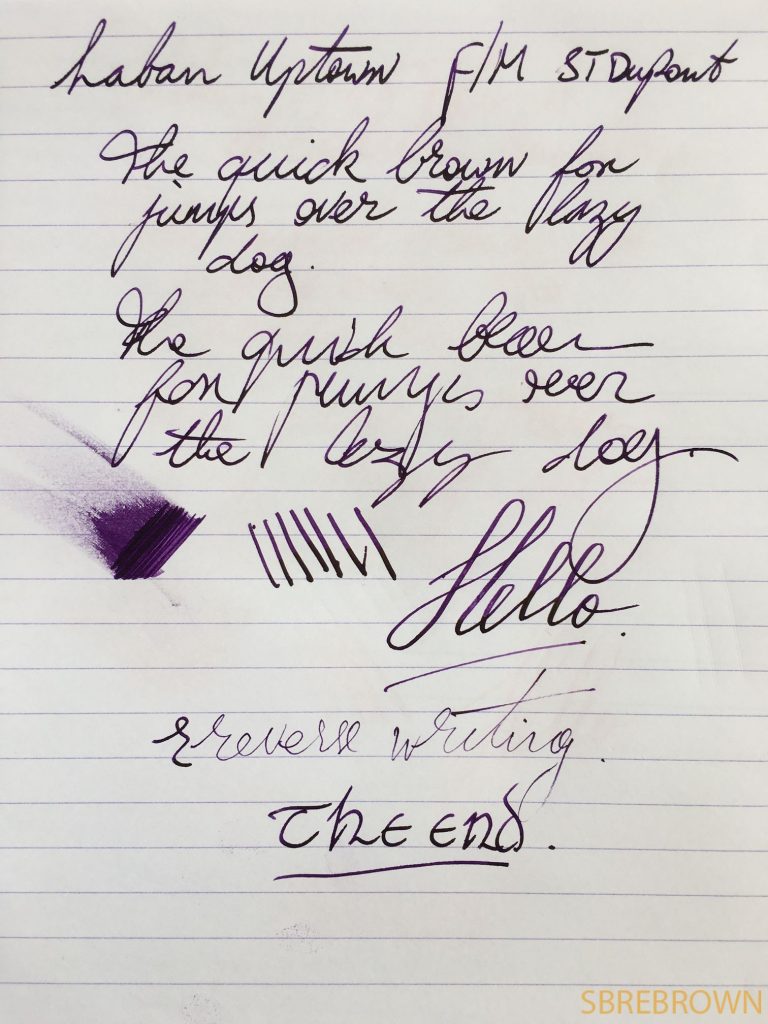 Laban Uptown F/M ST Dupont
The quick brown fox
jumps over the lazy
dog.
The quick brown
fox jumps over
the lazy dog
Hello.
reverse writing.
The End.
SBREBROWN